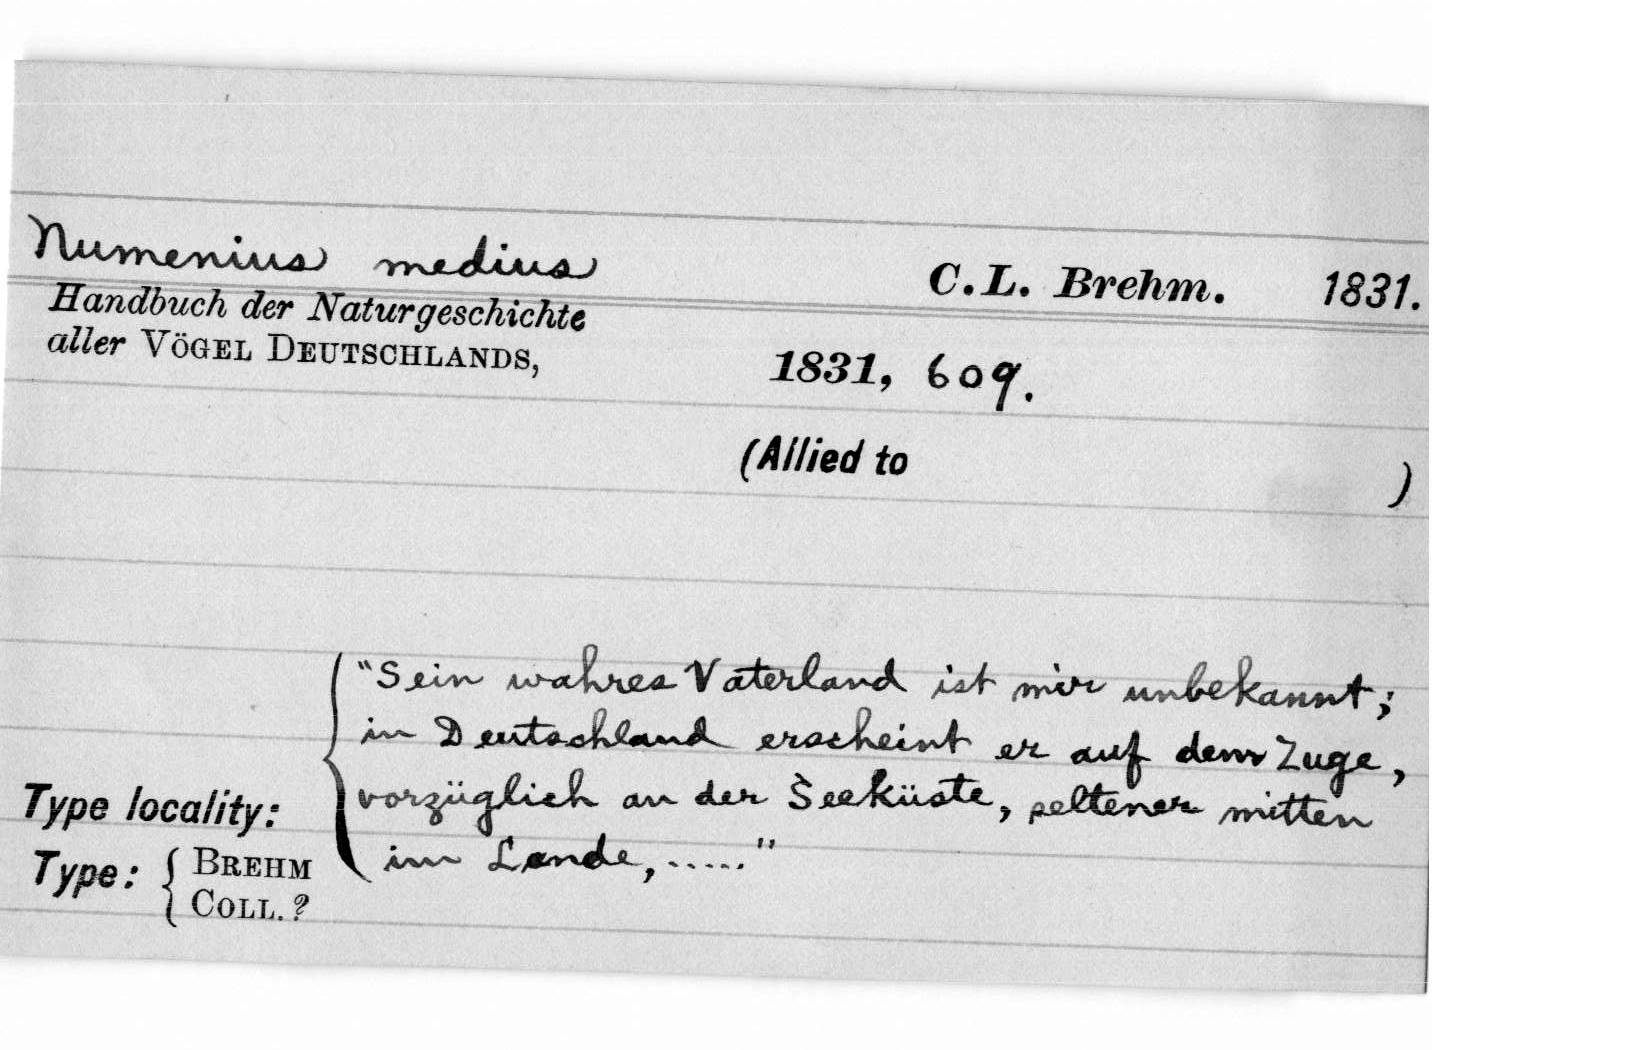 Numenius medius C.L. Brehm. 1831.
Handbuch der Naturgeschichte
aller VÖGEL DEUTSCHLANDS, 1831, 609.
(Allied to )
"Sein wahres Vaterland ist mir unbekannt;
in Deutschland erscheint er auf dem Zuge,
vorzüglich an der Seeküste, seltener mitten
im Lande, ....."
Type locality:
Type: { BREHM
COLL. ?